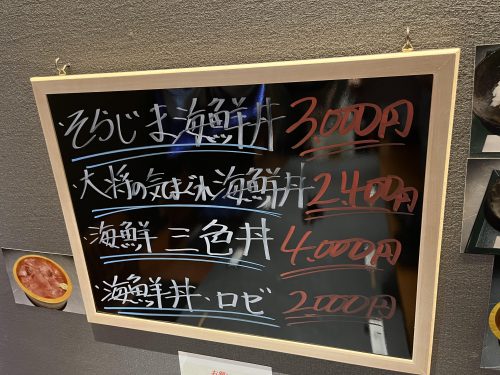 ・そらじま海鮮丼 3000円
・大将の気まぐれ海鮮丼 2.400円
・海鮮三色丼 4.000円
・海鮮丼・ロゼ 2.000円